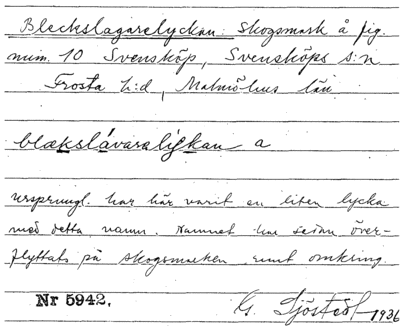 Bleckslagarelyckan: Skogsmark å fig.
num. 10 Svensköp, Svensköps s:n
Frosta h:d, Malmöhus län
blækslávaralykan a
ursprungl. har här varit en liten lycka
med detta namn. Namnet har sedan över-
flyttats på skogsmarken runt omkring.
Nr 5942.
G. Sjöstedt 1936